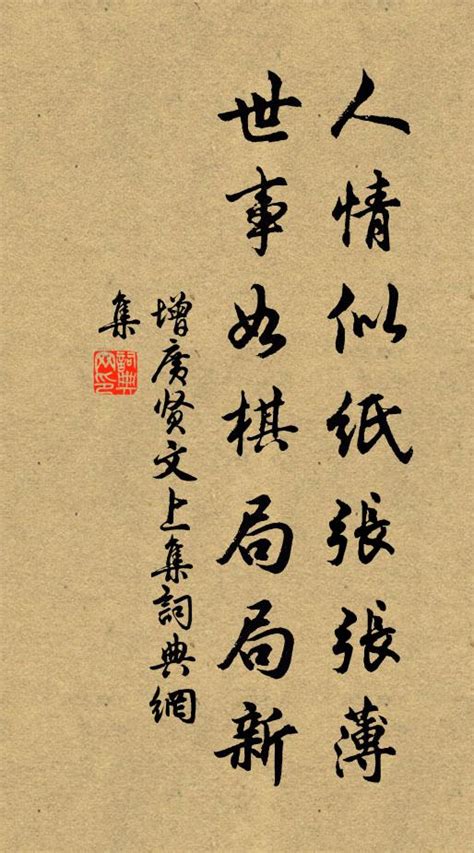 人情似纸張張薄
世事如棋局局新
增廣贤文上集詞典網
集
詞典網印